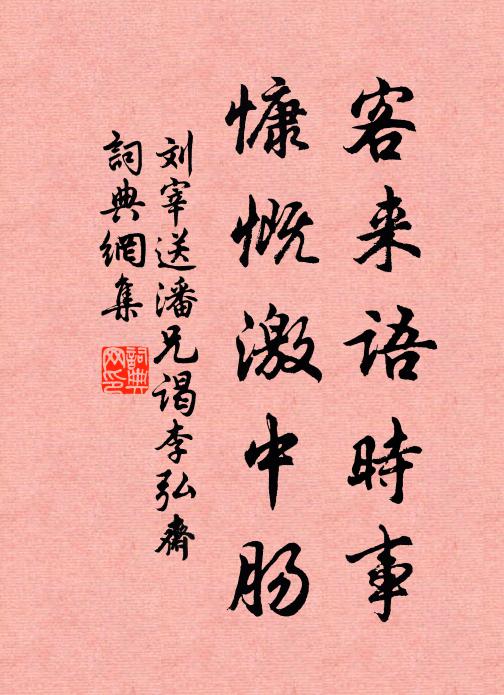 客来语時事
慷慨激中肠
刘宰送潘兄谒李弘齋
詞典網集
詞典网印